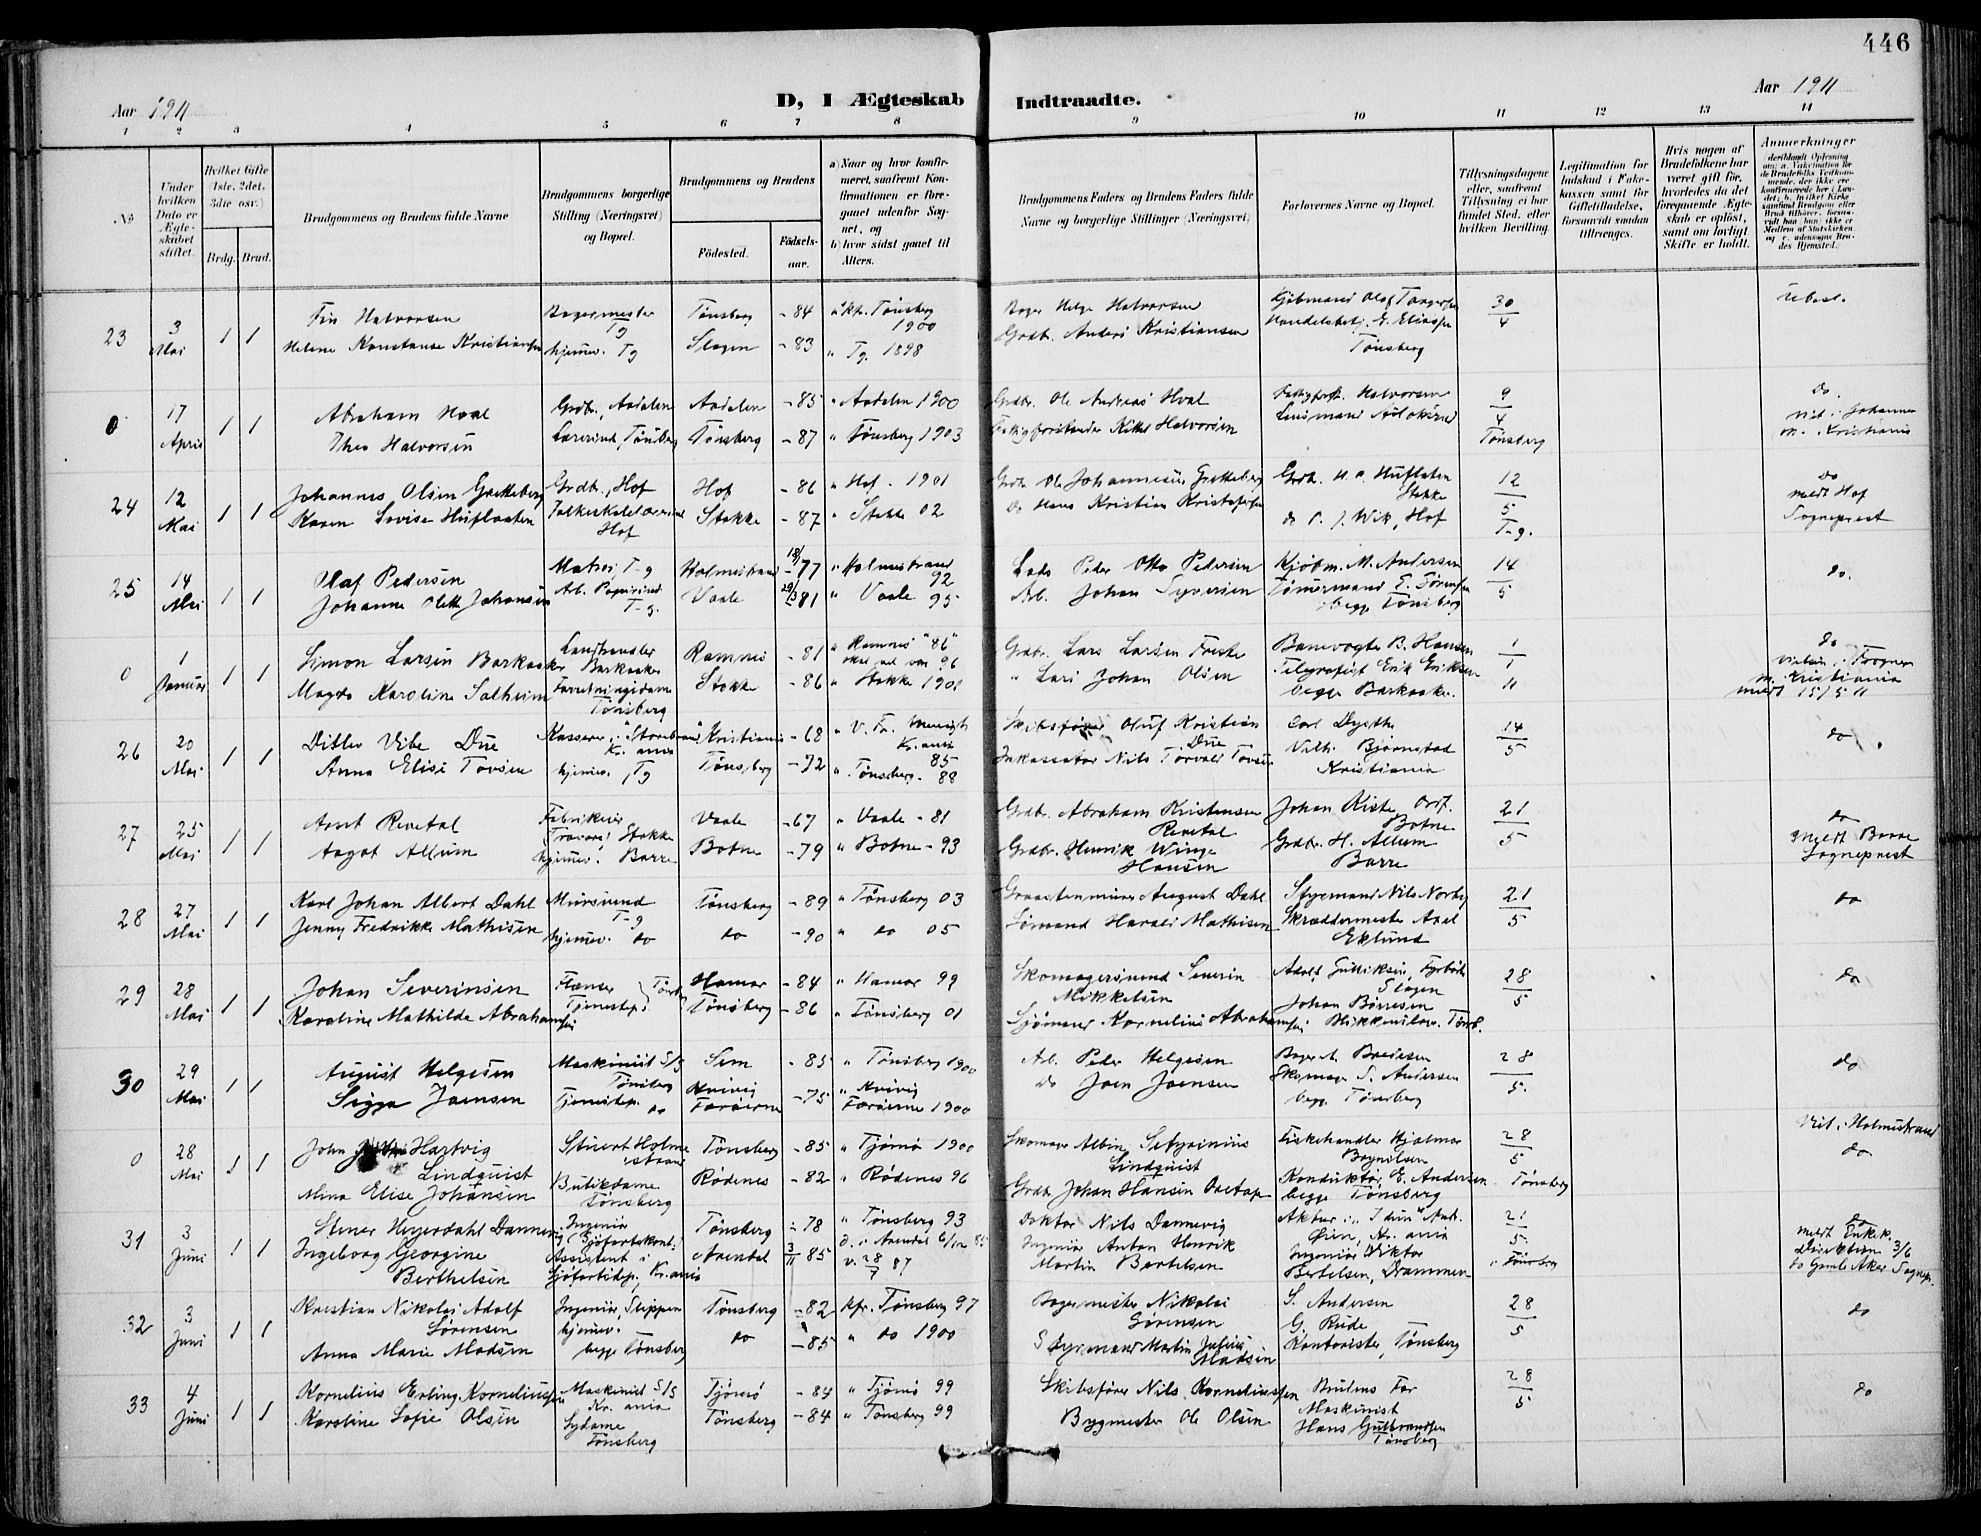 446
Aar 1911
D, I Ægteskab Indtraadte.
Aar 1911
1 2 3 4 5 6 7 8 9 10 11 12 13 14
No
Under hvilken Dato er Ægteskabet stiftet.
Hvilket Gifte (1ste, 2det, 3die osv.)
Brdg. Brud.
Brudgommens og Brudens fulde Navne
Brudgommens borgerlige Stilling (Næringsvei) og Bopæl.
Brudgommens og Brudens
Fødested.
Fødselsaar.
a) Naar og hvor konfirmeret, saafremt Konfirmationen er foregaaet udenfor Sognet, og
b) hvor sidst gaaet til Alters.
Brudgommens Faders og Brudens Faders fulde Navne og borgerlige Stillinger (Næringsvei)
Forlovernes Navne og Bopæl.
Tillysningsdagene eller, saafremt Tillysning ei har fundet Sted, efter hvilken Bevilling.
Legitimation for Indskud i Enkekassen samt for Giftetilladelse, forsaavidt saadan tiltrænges.
Hvis nogen af Brudefolkene har været gift før, hvorledes da det foregaaende Ægteskab er opløst, samt om lovligt Skifte er holdt.
Anmerkninger
23 3 Mai 1 1
Fin Halvorsen
Helene Konstanse Kristiansen
Bagermester Tg
hjemmev. Tg
Tønsberg - 84 kf. Tønsberg 1900
Slagen - 83 " Tg. 1898
Bager Helge Halvorsen
Grdbr. Anders Kristiansen
Kjøbmand Olaf Torgersen
Handelsbetj. E. Eliassen
Tønsberg
30/4
Ubesl.
0 17 April 1 1
Abraham Hval
Thea Halvorsen
Grdbr., Aadalen
Lærerinde, Tønsberg
Aadalen - 85 " Aadalen 1900
Tønsberg - 87 " Tønsberg 1903
Grdbr. Ole Andreas Hval
Fattigforstander Kittel Halvorsen
Fattigforst. Halvorsen
Lensmand
9/4
Tønsberg
do.
viet i Johannes
m. Kristiania
24 12 Mai 1 1
Johannes Olsen Gretteberg
Karen Lovise Huflaaten
Grdbr., Hof
Folkeskolelærerinde
Hof
Hof - 86 " Hof - 1901
Stokke - 87 " Stokke 02
Grdbr. Ole Johannesen Gretteberg
do Hans Kristian Kristofersen
Grdbr. H. O. Huflaten
Stokke
do P. J. Wik, Hof
12/5
T-g.
do
meldt Hof
Sogneprest
25 14 Mai 1 1
Olaf Pedersen
Johanne Olette Johansen
Matros T-g
Arb. Papirind.
T-g.
Holmestrand - 77 " Holmestrand 92
Vaale 81 " Vaale 95
Lods Peder Otto Pedersen
Arb. Johan Syversen
Kjøbm. M. Andersen
Tømermand T. Sørensen
begge Tønsberg
14/5
do.
0 1 Januar 1 1
Simon Larsen Barkaaker
Magda Karoline Solheim
Landhandler
Barkaaker
Forretningsdame
Tønsberg
Ramnes - 81 " Ramnes "86"
skal vel være 96
Stokke - 86 " Stokke 1901
Grdbr. Lars Larsen Freste
" Lars Johan Olsen
Banevogter B. Hansen
Telegrafist Erik Eriksen
begge Barkaaker.
1/1 11
do
vielsen i Frogner
m. Kristiania
meldt 15/5 11
26 20 Mai 1 1
Ditlev Vibe Due
Anna Elise Tovsen
Kasserer i "Storebrand"
Kr.ania
hjemmev., Tg
Kristiania - 68 " V. Fr. Menigh. Kr.ania 85
Tønsberg - 72 " Tønsberg - 88
Skibsfører Oluf Kristian
Due
Inkassator Nils Torvald Tovsen
Carl Dysthe
Vilh. Bjørnstad
Kristiania
14/5
do
27 25 Mai 1 1
Anst Revetal
Aagot Allum
Fabrikeier
Stokke
hjemmev. Borre
Vaale - 67 " Vaale - 81
Botne - 79 " Botne - 93
Grdbr. Abraham Kristensen
Revetal
Grdbr. Henrik Winge
Hansen
Johan Kiste, Ordf.
Botne
Grdbr. H. Allum
Borre
21/5
do
meldt Borre
Sogneprest
28 27 Mai 1 1
Karl Johan Albert Dahl
Jenny Fredrikke Mathisen
Mursvend
T-g
hjemmev. do
Tønsberg - 89 " Tønsberg 03
do - 90 " do 05
Graastensmurer August Dahl
Sømand Harald Mathisen
Styrmand Nils Norby
Skræddermester Axel
Eklund
21/5
do
29 28 Mai 1 1
Johan Severinsen
Karoline Mathilde Abrahamsen
Flænser
Tjenestep.
Tønsb.
Hamar - 84 " Hamar 99
Tønsberg - 86 " Tønsberg 01
Skomagersvend Severin
Mikkelsen
Sjømand Kornelius Abrahamsen
Adolf Gulliksen, Fyrbøder
Slagen
Johan Børresen
Tønsb.
28/5
do
30 29 Mai 1 1
August Helgesen
Sigga Joensen
Maskinist S/S
Tønsberg
Tjenestep. do
Sem - 85 " Tønsberg 1900
Kvivig
Færøerne - 75 " Kvivig
Færøerne 1900
Arb. Peder Helgesen
do Joen Joensen
Bager A. Bredesen
Skomager S. Andersen
begge Tønsberg
28/5.
do
0 28 Mai 1 1
John Hartvig
Lindquist
Alma Elise Johansen
Stuert Holmestrand
Butikdame
Tønsberg
Tønsberg - 85 " Tjømø 1900
Rødenes - 82 " Rødenes 96
Skomager Albin Sefyrinius
Lindquist
Grdbr. Johan Hansen
Fiskehandler Hjalmar
Bagnilsen
Konduktør E. Andersen
begge Tønsberg
28/5
Tønsberg
Viet i Holmestrand
do
31 3 Juni 1 1
Stener Heyerdahl Dannevig
Ingeborg Georgine
Berthelsen
Ingeniør
Sjøfartskont.
Assistent i
Sjøfartsdep., Kr.ania
Tønsberg - 78 " Tønsberg 93
Arendal 3/11 85 d. i Arendal 6/12 85
v. 28/7 87
Doktor Nils Dannevig
Ingeniør Anton Henrik
Martin Bertelsen
Aktuar i "Idun" Ant.
Øien, Kr.ania
Ingeniør Viktor
Bertelsen, Drammen
21/5
i Tønsberg
do
meldt Enkek.
Direktion 3/6
do Gamle Aker Sognepr.
32 3 Juni 1 1
Kristian Nikolai Adolf
Sørensen
Anna Marie Madsen
Ingeniør, Slippen
hjemmev.
begge Tønsberg
Tønsberg - 82 kfr. Tønsberg 97
do - 85 " do 1900
Bagermester Nikolai
Sørensen
Styrmand Martin Julius
Madsen
S. Andersen
G. Rude
Kontorister, Tønsberg
28/5
do
33 4 Juni 1 1
Kornelius Erling Korneliussen
Karoline Sofie Olsen
Maskinist S/S
Kr.ania
Sydame
Tønsberg
Tjømø - 84 " Tjømø 99
Tønsberg - 84 " Tønsberg 99
Skibsfører Nils Korneliussen
Bygmester Ole Olsen
Brudens Far
Maskinist
Hans Gulbrandsen
Tønsberg
28/5
do